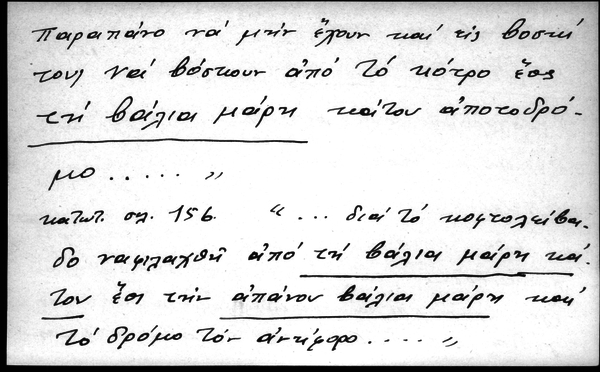 παραπάνο νά μήν ἔχουν καί εἰς βοσκί
τους νά βόσκουν ἀπό τό κότρο ἕος
τή βάλια μάρη κάτου ἀποτοδρό-
μο ..... „
κατωτ. σελ. 156. “ ... διά τό κοφτολείβα-
δο ναφιλαχθῆ ἀπό τή βάλια μάρη κά-
του ἕος τήν ἀπάνου βάλια μάρη καί
τό δρόμο τόν ἀντίφορο .... „